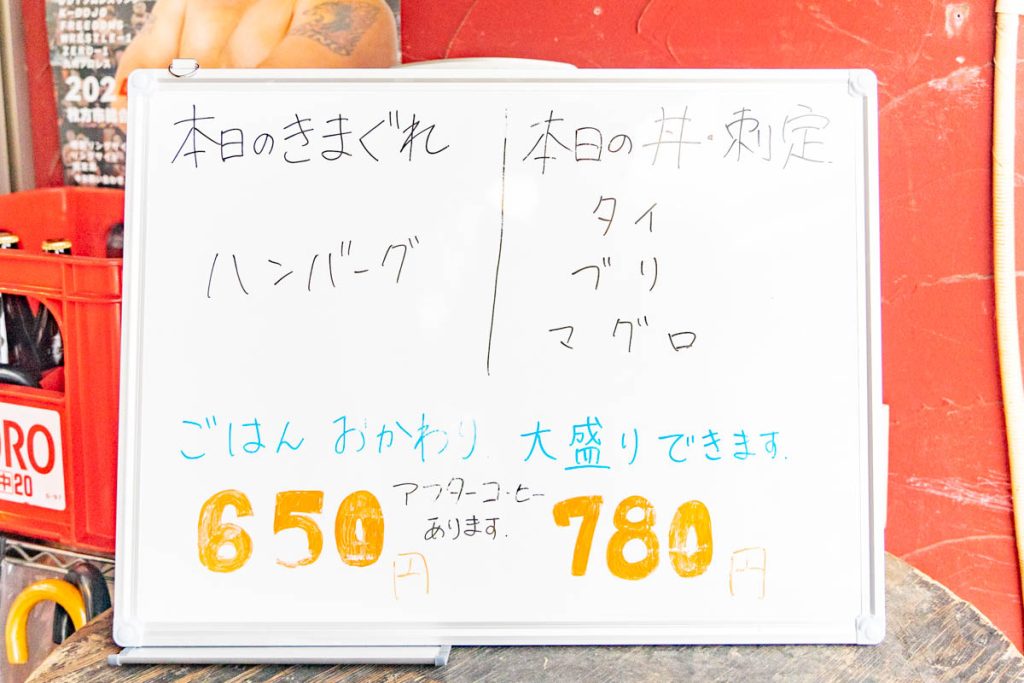 本日のきまぐれ
ハンバーグ
本日の丼・刺定
タイ
ブリ
マグロ
ごはん おかわり. 大盛りできます.
650円
アフターコーヒー
あります.
780円
WRESTLE-1
ZERO-1
202
ORO
中20